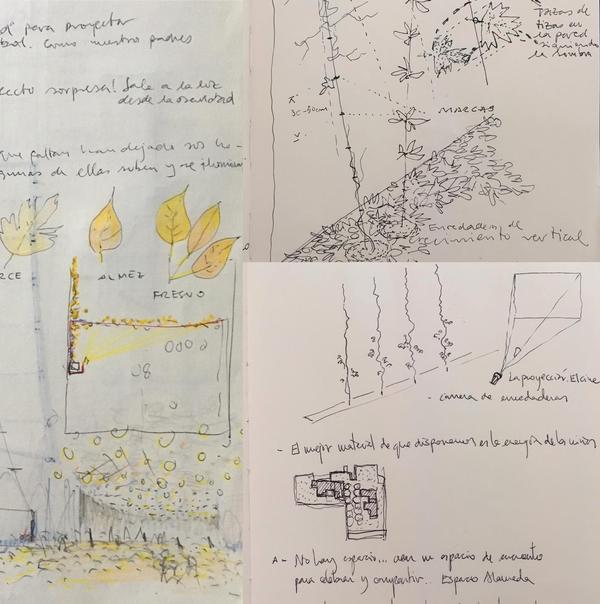 para proyectar
como nuestro padres
sorpresa! Sale a la luz
desde la oscuridad
que faltan han dejado sus ho-
de ellas suben y se
RCE
ALMEZ
FRESNO
trazas de
tizas en
la pared
siguiendo
la sombra
30-50cm
MARCAS
Enredaderas de
crecimiento vertical
La proyección. El cine
- carrera de enredaderas
- El mejor material de que disponemos es la energía de los niños
A- No hay espacio... un espacio de encuentro
para celebrar y compartir.. Espacio Alameda